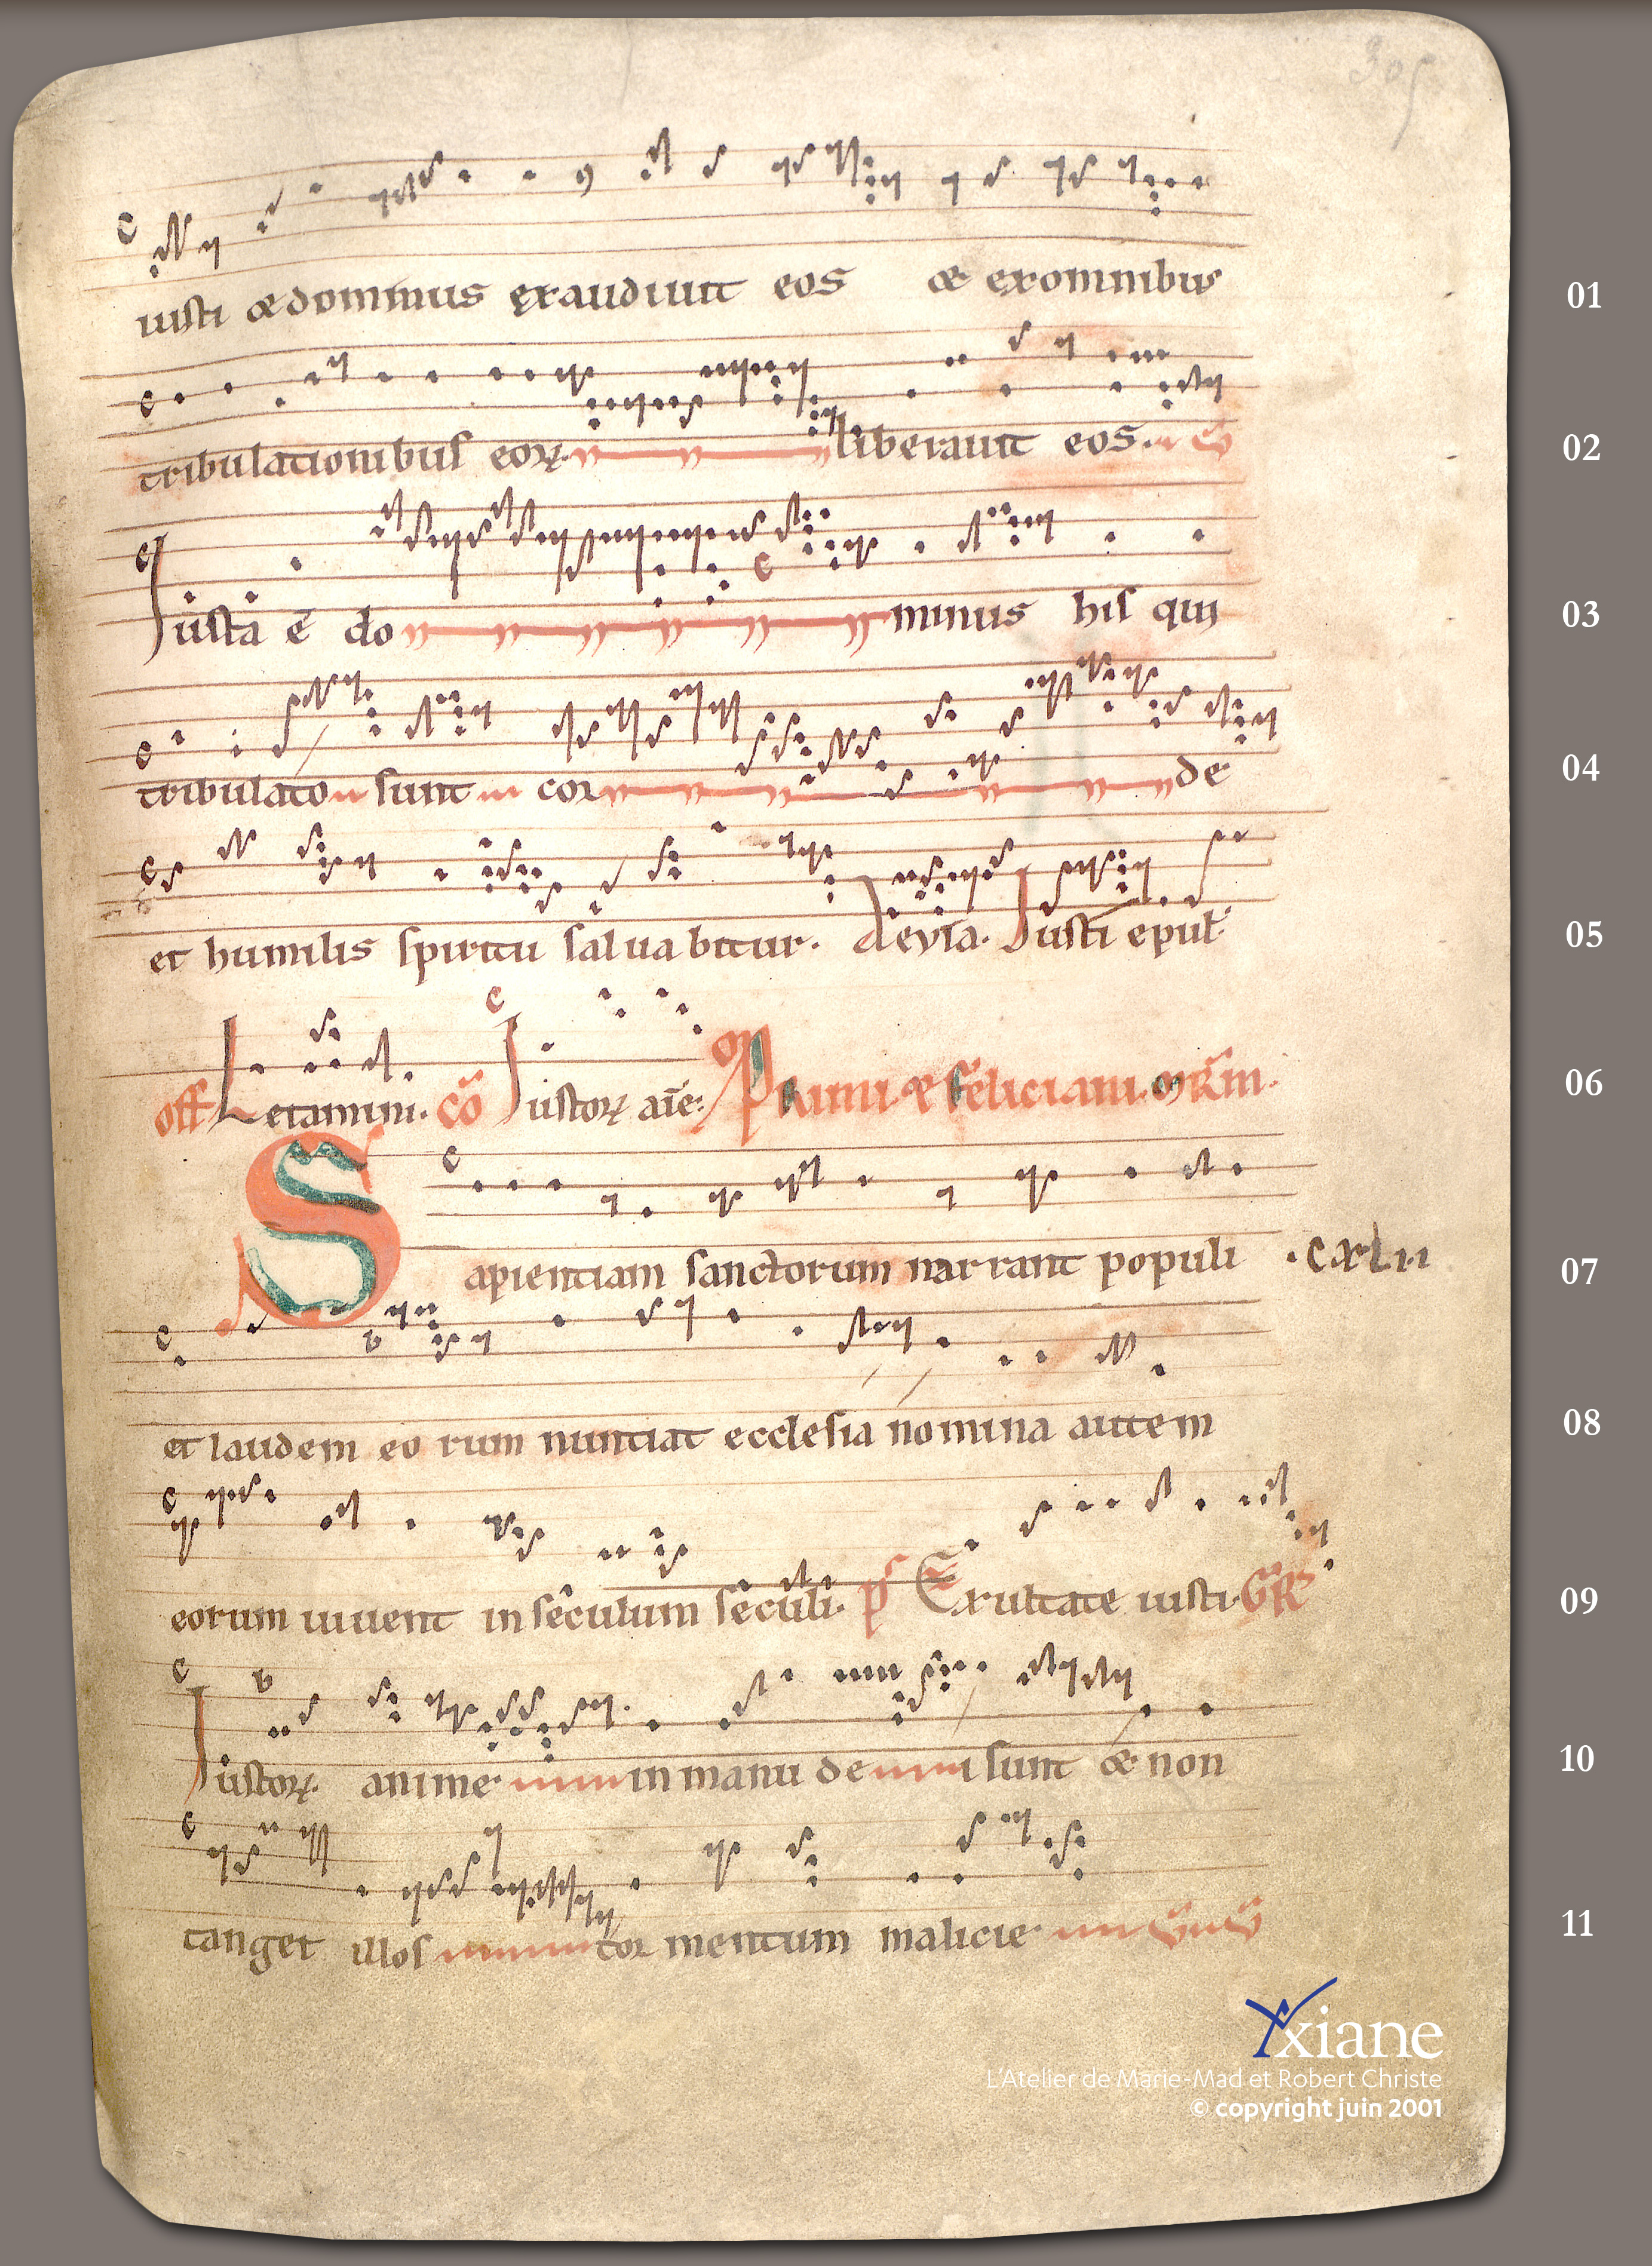 305
iusti & dominus exaudiuit eos & exomnibus 01
tribulationibus eoꝝ liberauit eos. 02
Iusta ē dominus his qui 03
tribulato sunt corde 04
et humilis spiritu saluabitur. Aeuia. Iusti epul 05
off Letamini. cō Iustoꝝ aīe: Primi & feliciani. mr̄m. 06
Sapientiam sanctorum narrant populi .cxlii 07
et laudem eorum nuntiat ecclesia nomina autem 08
eorum uiuent in seculum seculi. ps Exultate iusti. GR 09
Iustoꝝ anime in manu dei sunt & non 10
tanget illos tormentum malicie 11
xiane
L'Atelier de Marie-Mad et Robert Christe
© copyright juin 2001